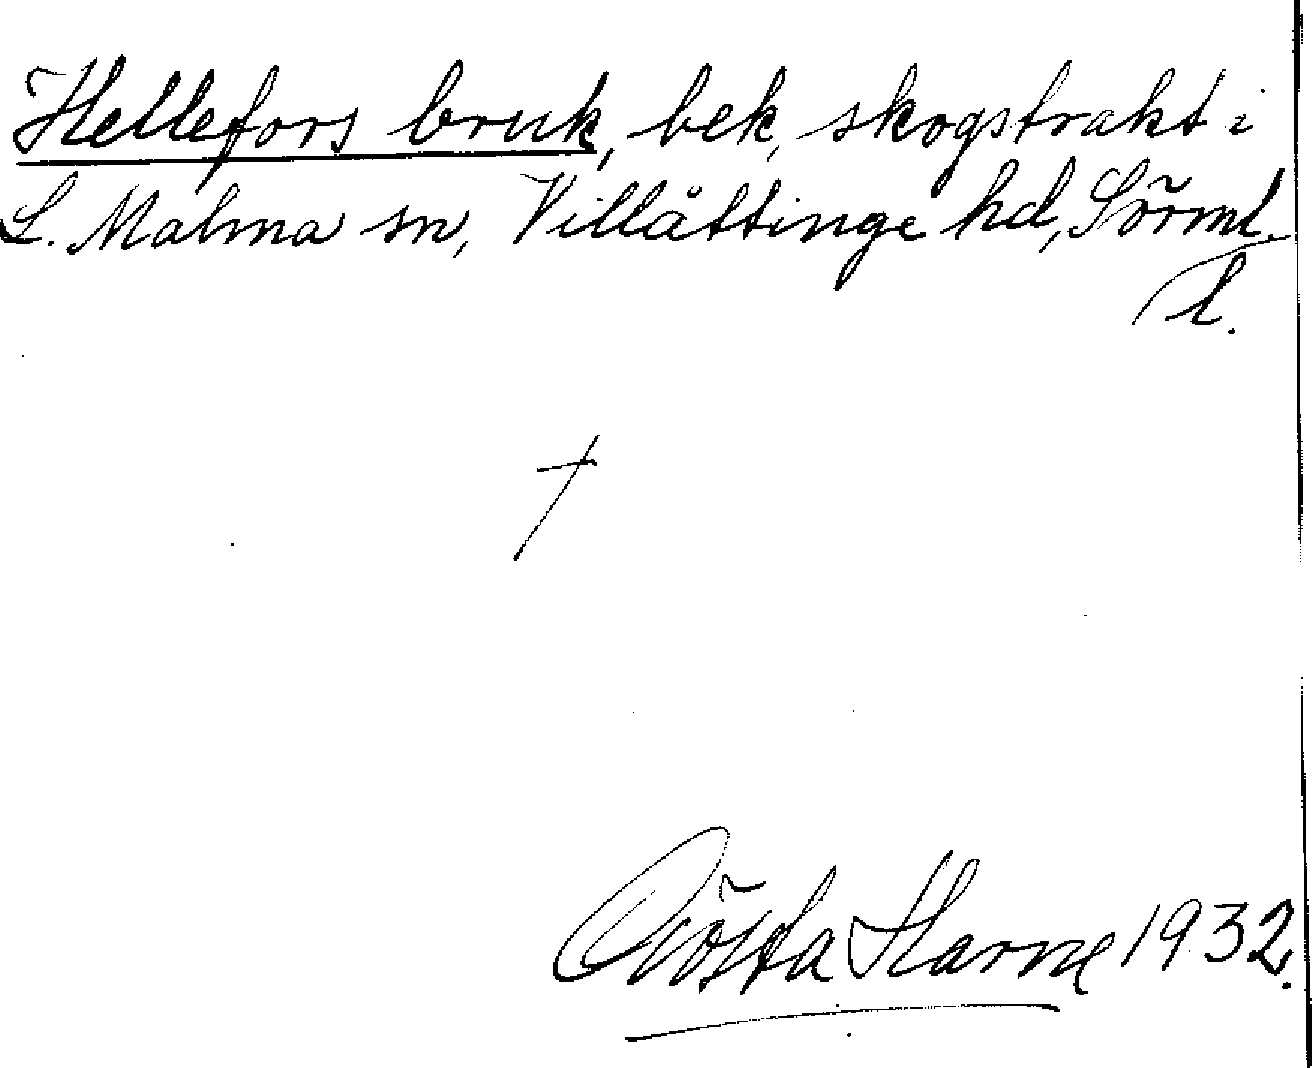 Hellefors bruk, bek, skogstrakt i
L. Malma sn, Villåttinge hd, Sörml.
l.
Gösta Harne 1932.